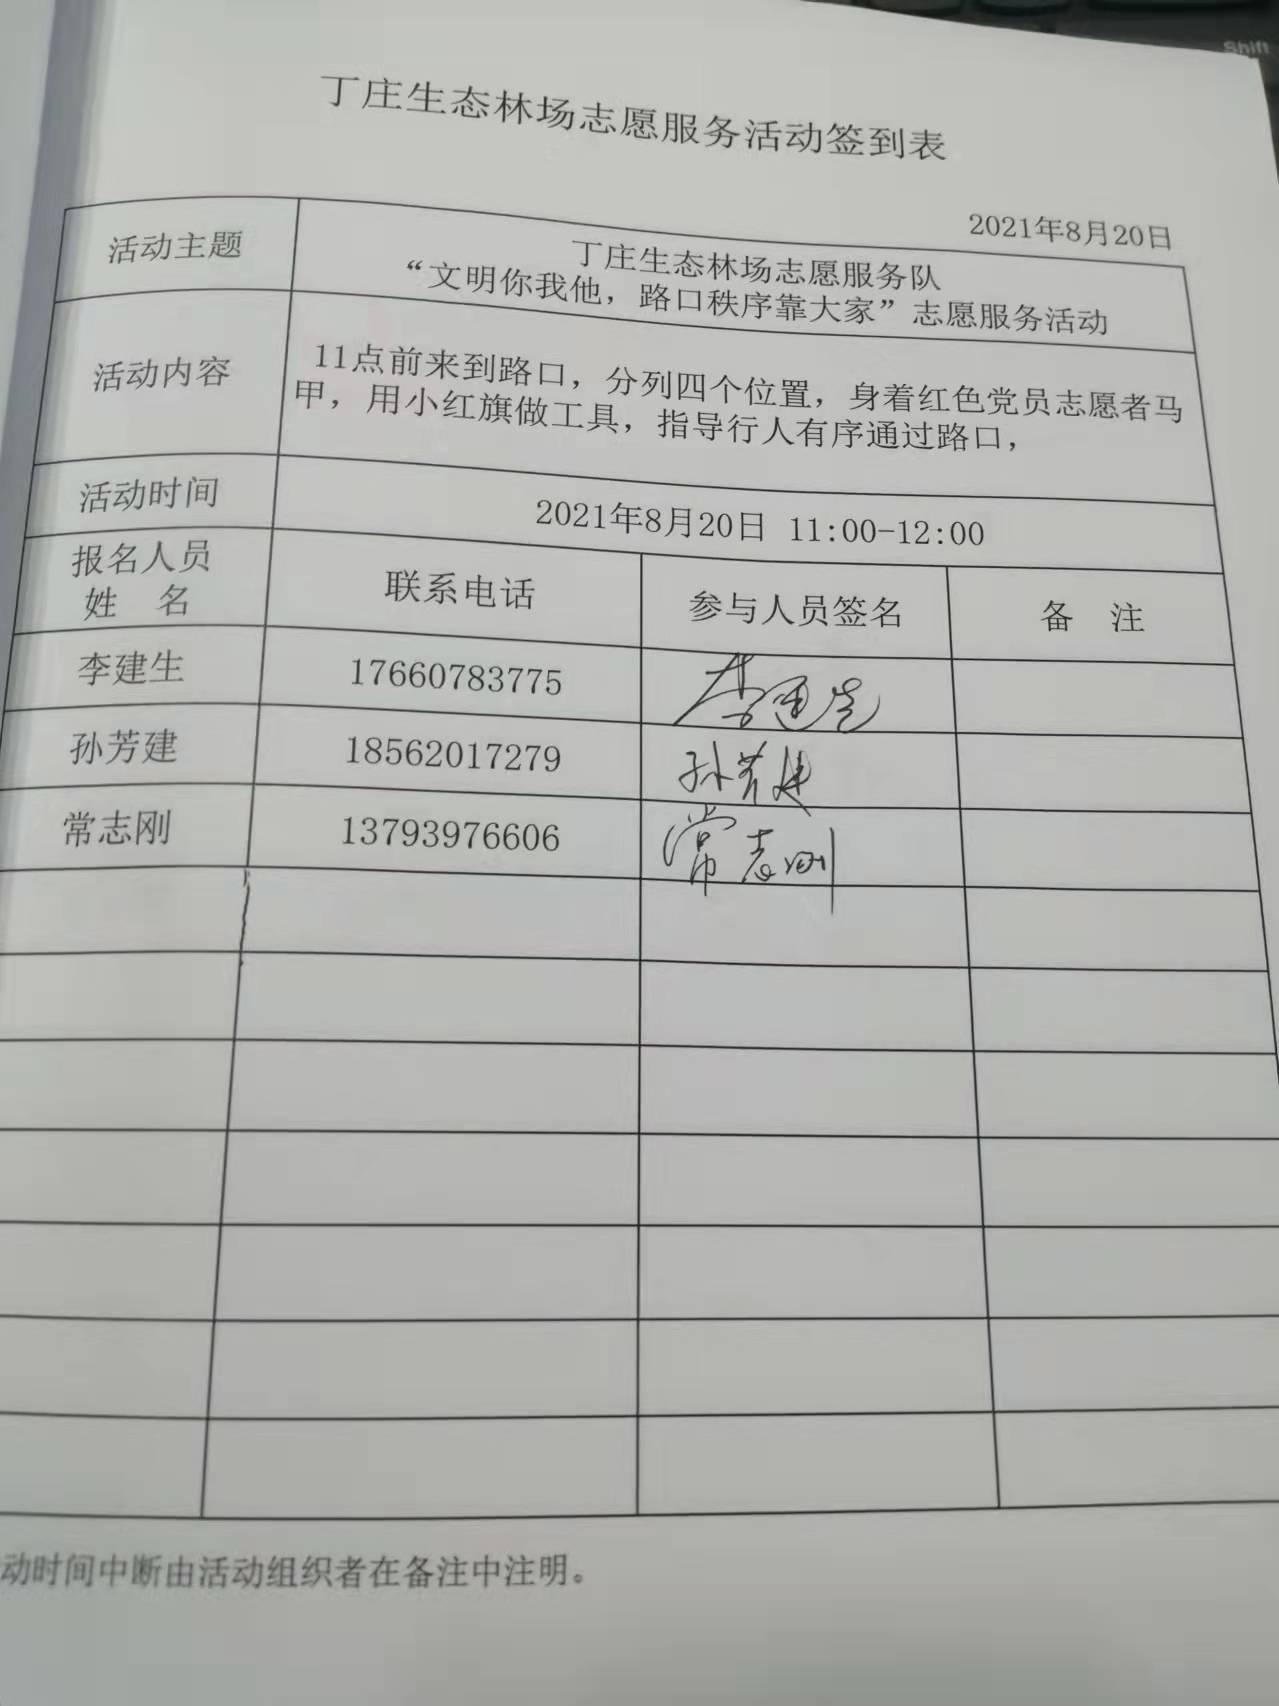 Shift
丁庄生态林场志愿服务活动签到表
2021年8月20日
活动主题
丁庄生态林场志愿服务队
“文明你我他，路口秩序靠大家”志愿服务活动
活动内容
11点前来到路口，分列四个位置，身着红色党员志愿者马
甲，用小红旗做工具，指导行人有序通过路口，
活动时间
2021年8月20日 11:00-12:00
报名人员
姓 名
联系电话
参与人员签名
备 注
李建生
17660783775
李建生
孙芳建
18562017279
孙芳建
常志刚
13793976606
常志刚
动时间中断由活动组织者在备注中注明。